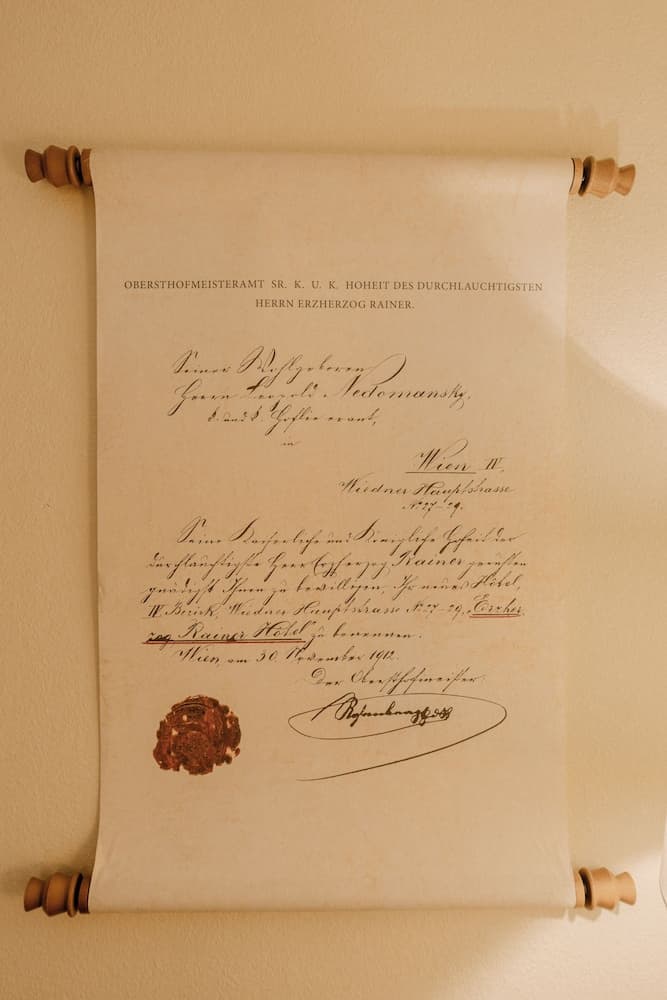 OBERSTHOFMEISTERAMT SR. K. U. K. HOHEIT DES DURCHLAUCHTIGSTEN
HERRN ERZHERZOG RAINER.
Seiner Wohlgeboren
Herrn Leopold Nedomansky,
k. und k. Hoflieferant,
in
Wien IV.
Wiedner Hauptstrasse
No 27-29.
Seine Kaiserliche und Königliche Hoheit der
durchlauchtigste Herr Erzherzog Rainer geruhten
gnädigst Ihnen zu bewilligen, Ihr neues Hôtel,
IV. Bezirk, Wiedner Hauptstrasse No 27-29, „Erzher
zog Rainer Hôtel" zu benennen.
Wien, am 30. November 1912.
Der Obersthofmeister: